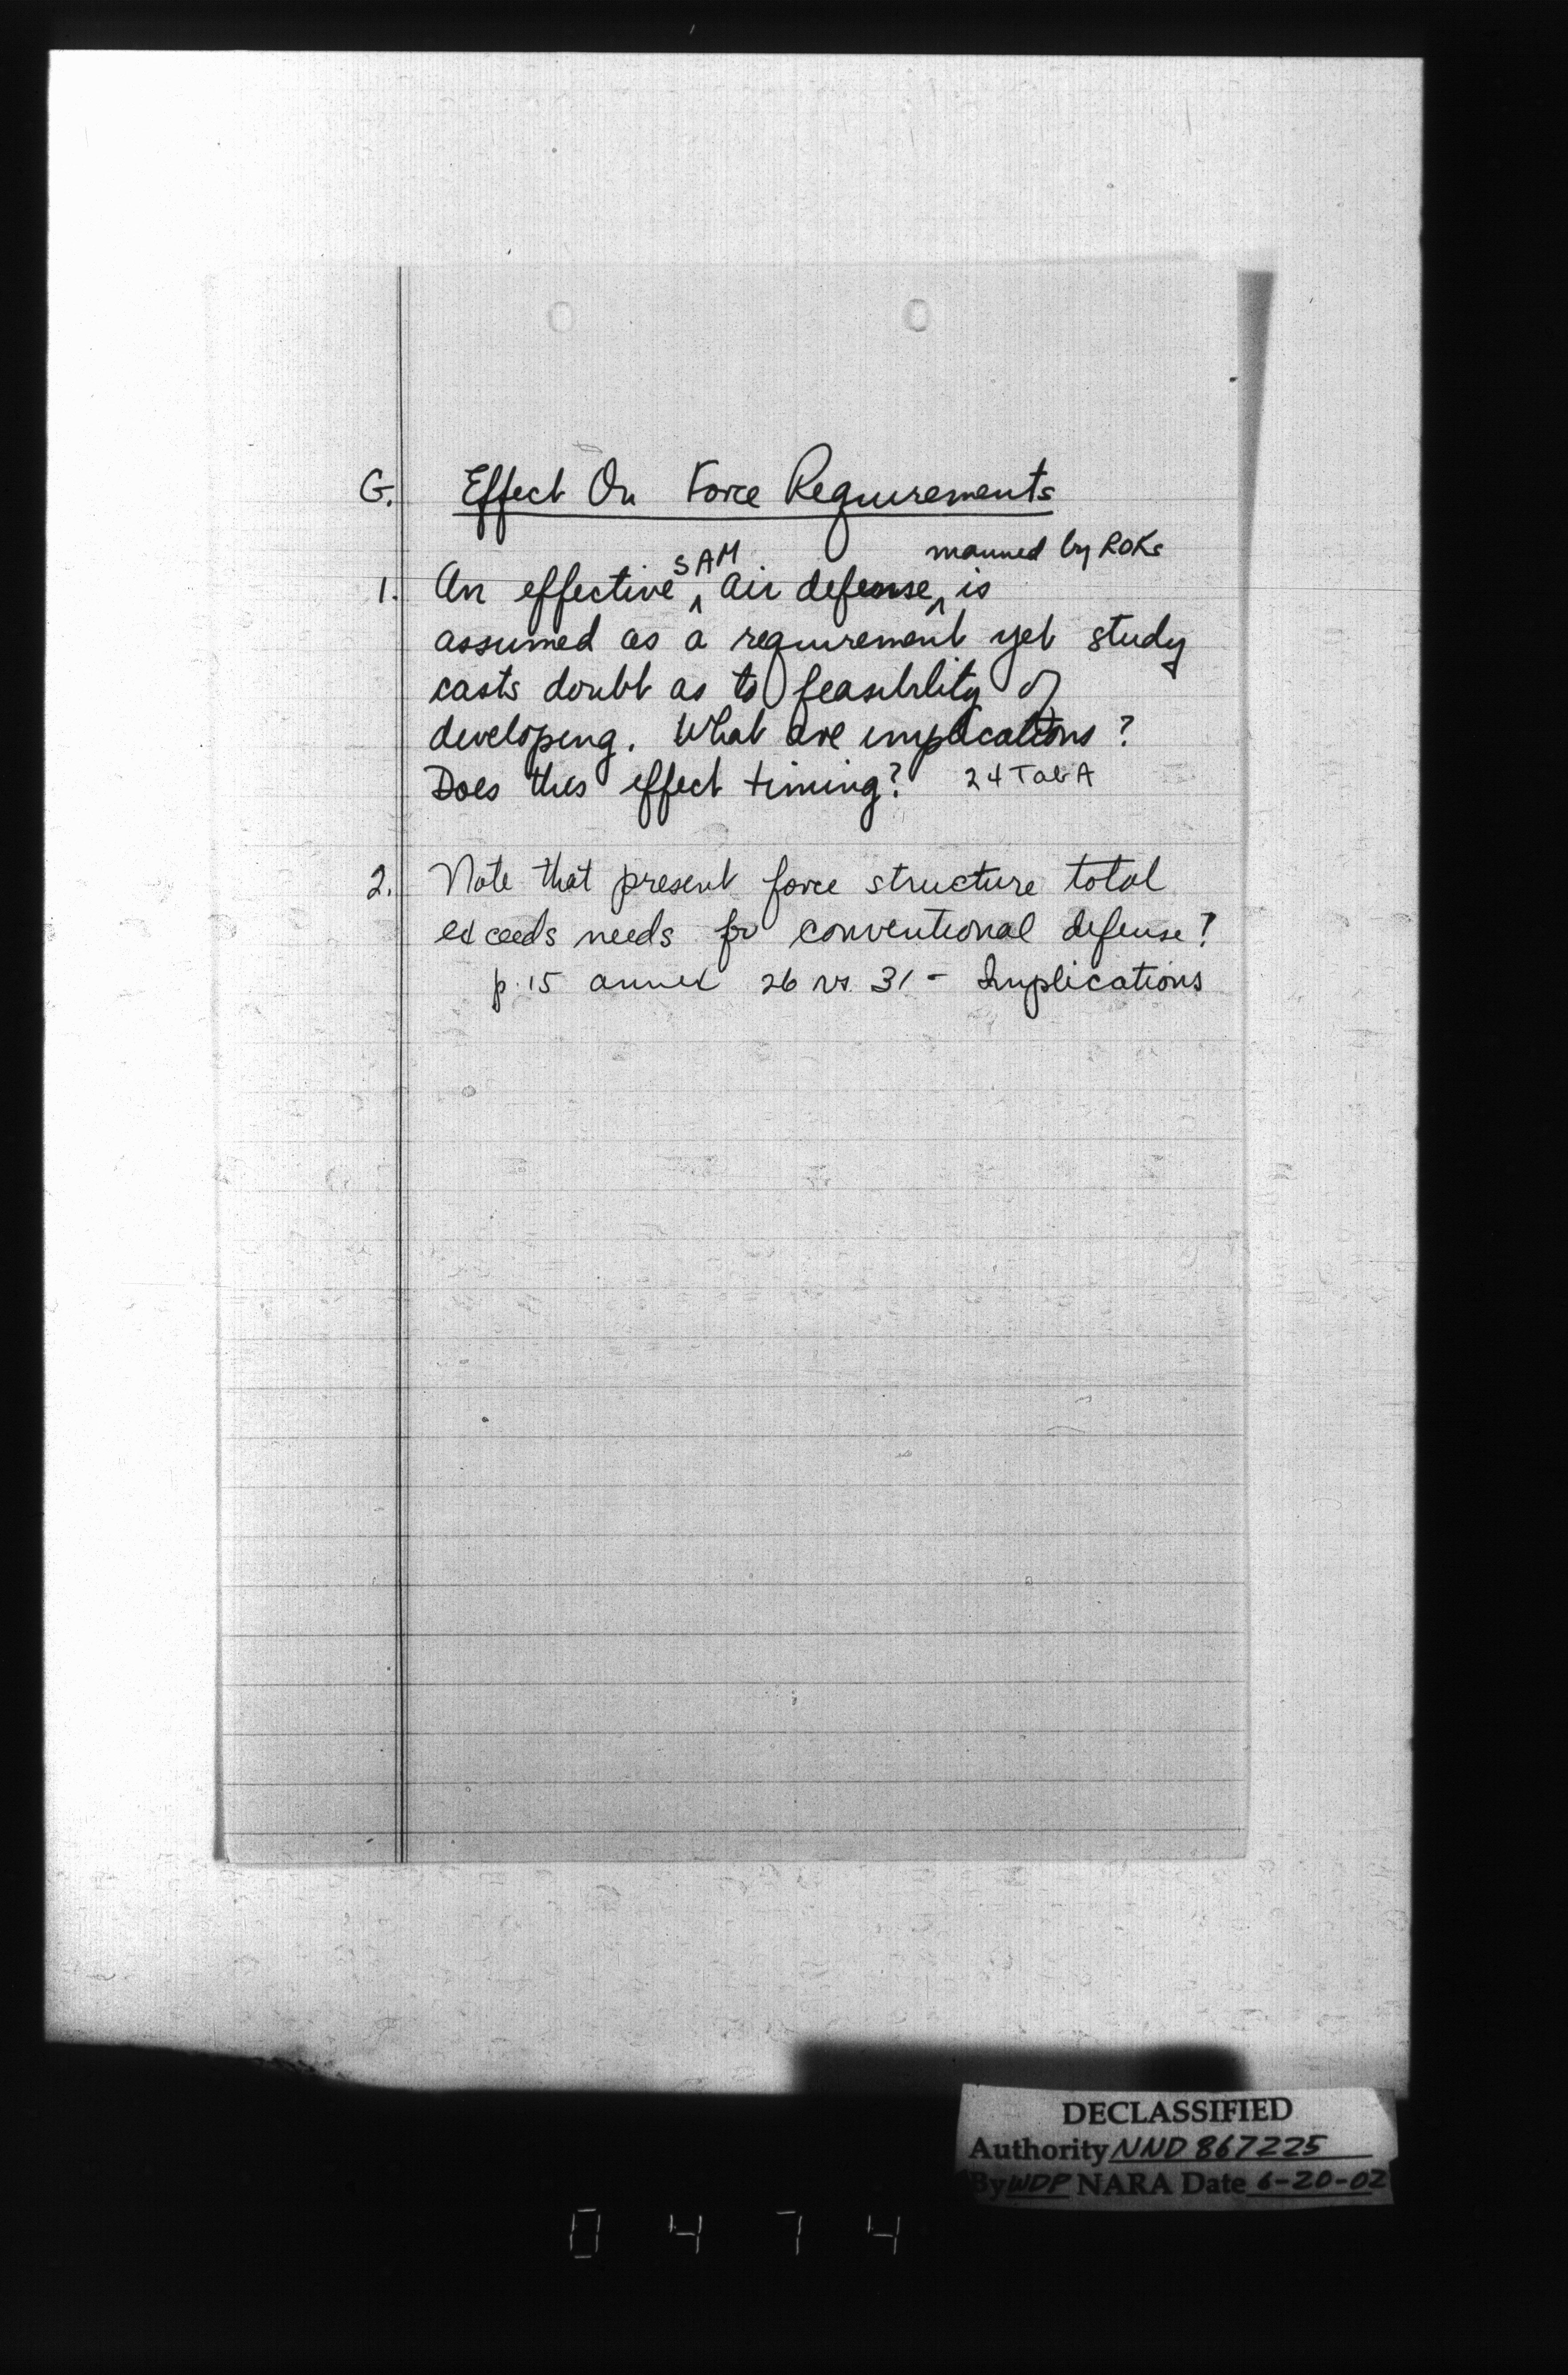 G. Effect On Force Requirements
SAM manned by ROKs
1. An effective ^ air defense ^ is
assumed as a requirement yet study
casts doubt as to feasibility of
developing. What are implications?
Does this effect timing? 24 Tab A
2. Note that present force structure total
exceeds needs for conventional defense?
p. 15 annex 26 vs. 31 - Implications
DECLASSIFIED
Authority NND 867225
By WDP NARA Date 6-20-02
0474